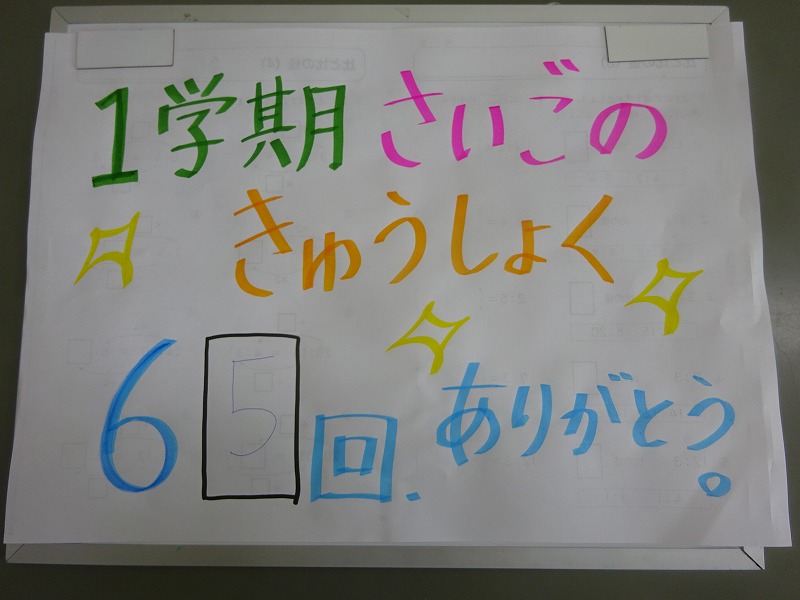 1学期さいごの
きゅうしょく
65回、ありがとう。